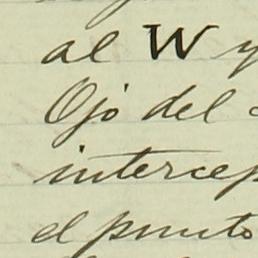 al W y
Ojo del
intercep
el punto